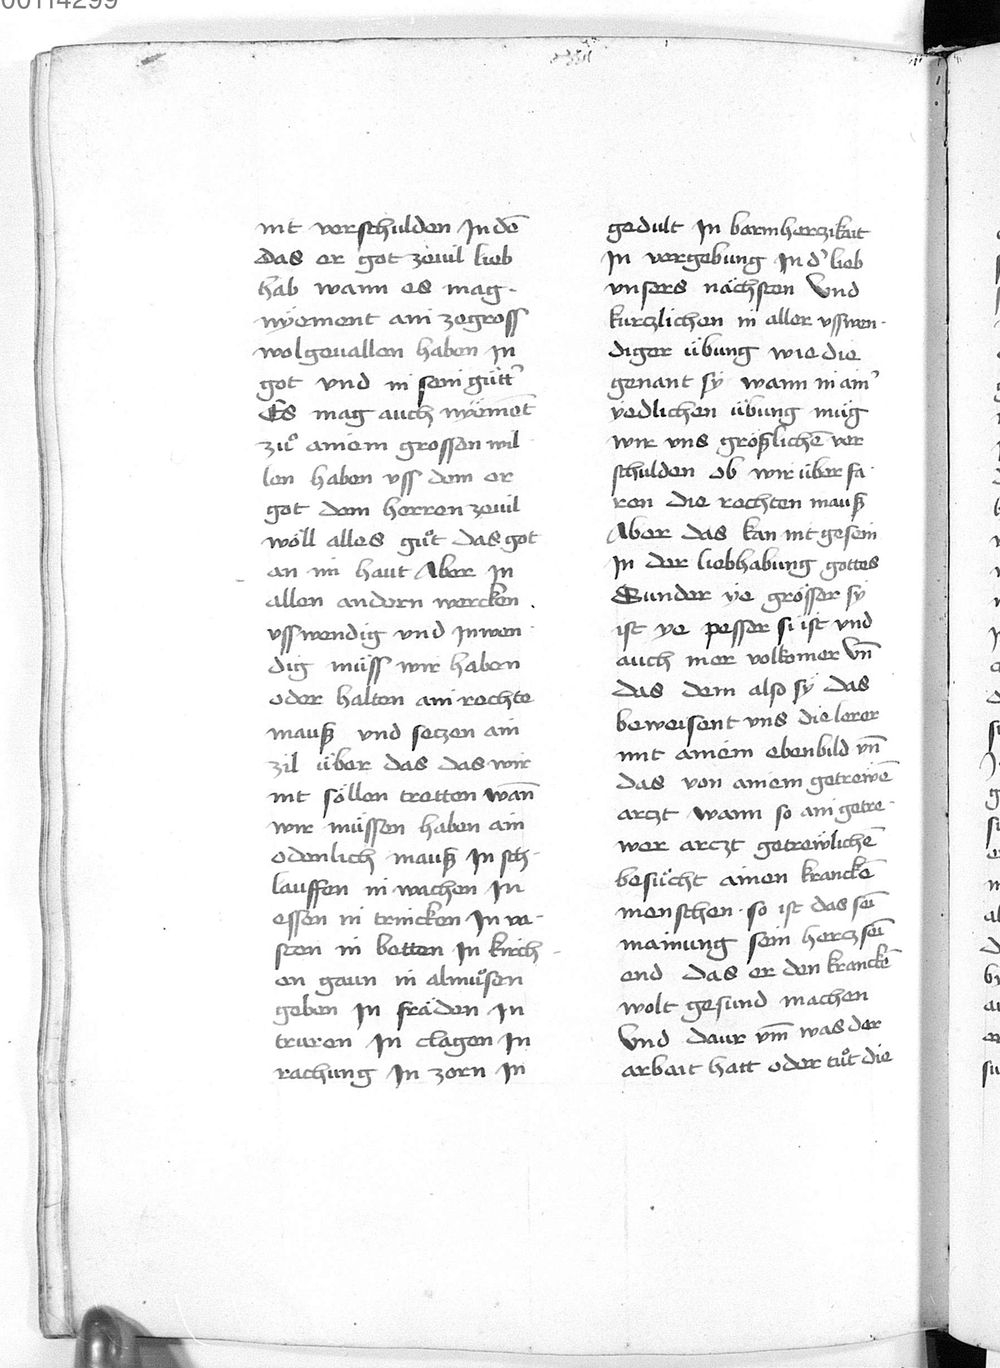 00114299
nit verschulden In dē
das er got zeuil lieb
hab wann es mag
nyëment ain zegross
wolgeuallen haben in
got vnd in sein gütt
Es mag auch nyëmēt
zuͦ ainem grossen wil
len haben vss dem er
got dem herren zeuil
wöll alles guͦt das got
an im haut Aber in
allen andern wercken
vsswendig vnd Inwen
dig müss wir haben
oder halten ain rechte
mauß vnd seczen ain
zil über das das wir
nit söllen tretten wañ
wir müssen haben ain
odenlich mauß In sch-
lauffen in wachen In
essen in trincken In va-
sten in betten In kirch-
en gaun in almuͦsen
geben In fräden In
truren In clagen In
rachung In zorn In
gedult In barmherczikait
In vergebung In d' lieb
vnsers nächsten Vnd
kurczlichen in aller vsswen-
diger übung wie die
genant sy wann in ain'
yedlichen übung müg
wir vns größlichē ver
schulden ob wir über fa
ren die rechten mauß
Aber das kan nit gesein
In der liebhabung gottes
Sunder ye grösser sy
ist ye pesser si ist vnd
auch mer volkomer Vn̄
das dem also sy das
beweisent vns die lerer
mit ainem ebenbild vn̄
das von ainem getrewē
arczt wann so ain getre-
wer arczt getrewlichē
besücht ainen kranckē
menschen so ist das sei
mainung sein hercz sei
end das er den kranckē
wolt gesund machen
Vnd daur vm̄ was der
arbait hatt oder tuͦt die